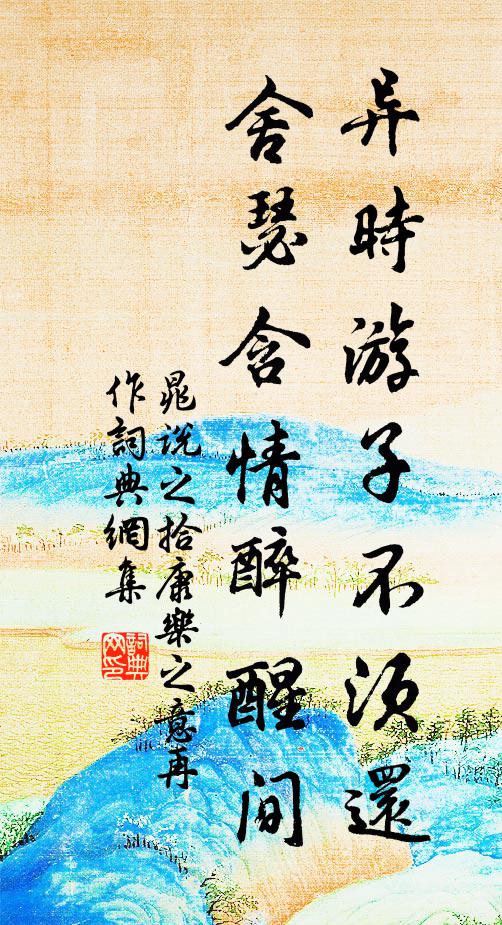 异時游子不須還
舍瑟含情醉醒间
晁说之拾康樂之意再
作詞典網集
詞典
网印